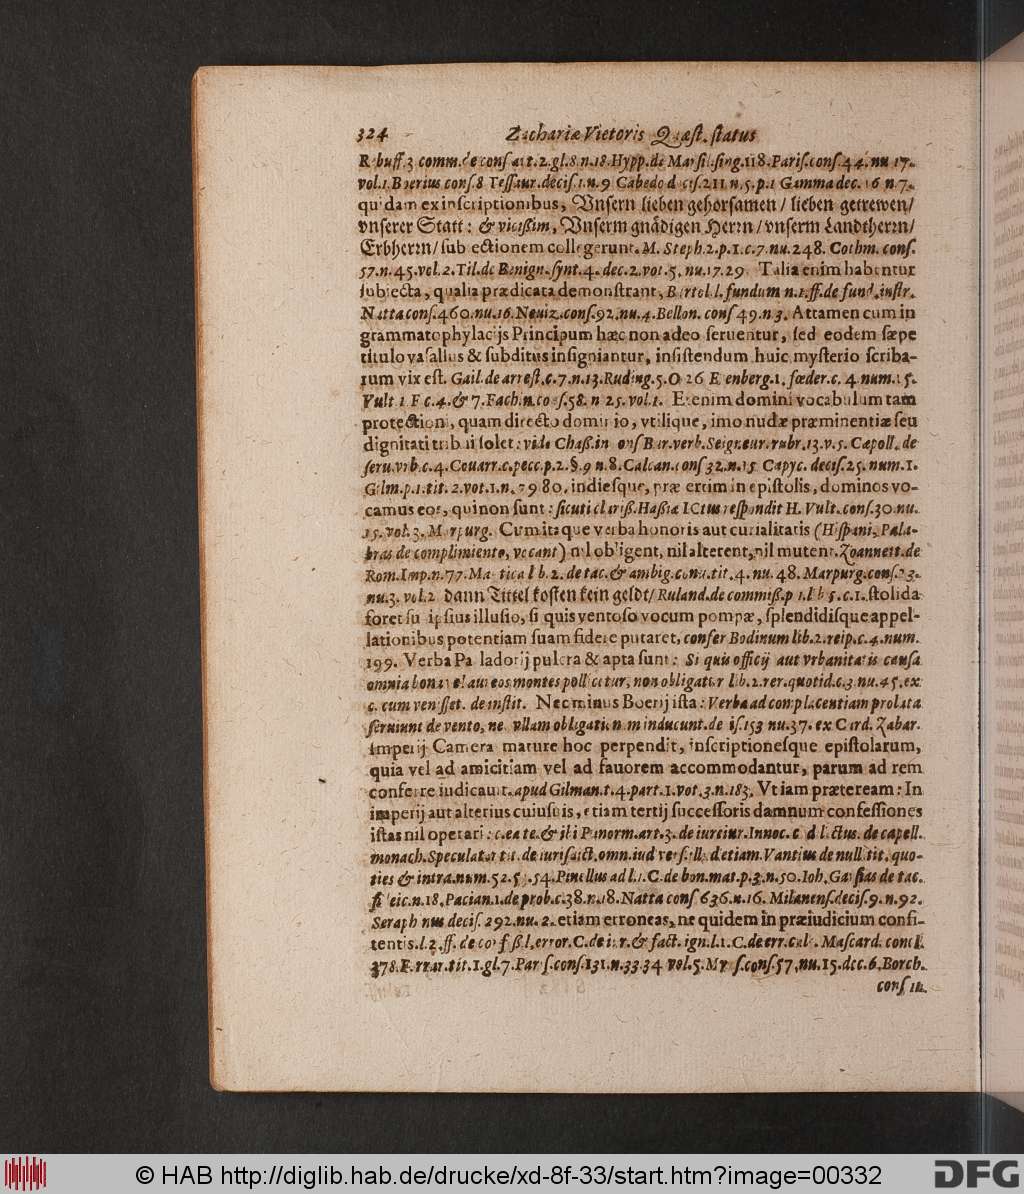 324 Zachariæ Vietoris Quæst. status
Rebuff. 3 comm. de consuet. 2. gl. 8. n. 18. Hypp. de Marsil. sing. 118. Paris. cons. 44. nu 17.
vol. 1. Boerius cons. 8 Tessaur. decis. 1. n. 9 Cabedo decis. 211 n. 5. p. 1 Gamma dec. 16 n. 7.
quidam ex inscriptionibus, Vnsern lieben gehorsamen / lieben getrewen /
vnserer Statt: & vicissim, Vnserm gnädigen Herrn / vnserm Landtherrn /
Erbherrn / subiectionem collegerunt. M. Steph. 2. p. 1. c. 7. nu. 248. Cothm. cons.
57. n. 45. vol. 2. Til. de Benign. synt. 4. dec. 2. vot. 5. nu. 17. 29. Talia enim habentur
subiecta, qualia prædicata demonstrant, Bartol. l. fundum n. 1. ff. de fund. instr.
Natta cons. 460. nu. 16. Neuiz. cons. 92. nu. 4. Bellon. cons 49. n. 3. Attamen cum in
grammatophylacijs Principum hæc non adeo seruentur, sed eodem sæpe
titulo vasallus & subditus insigniantur, insistendum huic mysterio scriba-
rum vix est. Gail. de arrest. c. 7. n. 13. Ruding. 5. O 26 Erenberg. 1. fœder. c. 4. num. 15.
Vult. 1. F c. 4. & 7. Fachin. cons. 58. n 25. vol. 1. Etenim domini vocabulum tam
protectioni, quam directo dominio, vtilique, imo nudæ præminentiæ seu
dignitati tribui solet: vide Chaß. in cons Bur. verb. Seigneur. rubr. 13. v. 5. Capoll. de
seru. vrb. c. 4. Couarr. c. pecc. p. 2. §. 9 n. 8. Calcan. cons 32. n. 15 Capyc. decis. 25. num. 1.
Gilm. p. 1. tit. 2. vot. 1. n. 79 80. indiesque, præsertim in epistolis, dominos vo-
camus eos, qui non sunt: sicuti clariß. Haßiæ ICtus respondit H. Vult. cons. 30. nu.
15. vol. 3. Marpurg. Cum itaque verba honoris aut curialitatis (Hispani, Pala-
bras de complimiento, vocant) nil obligent, nil alterent, nil mutent. Zoannett. de
Rom. Imp. n. 77. Mantica lib. 2. de tac. & ambig. conu. tit. 4. nu. 48. Marpurg. cons. 23.
nu. 3. vol. 2 dann Tittel kosten kein geldt / Ruland. de commiß. p 1. lib 5. c. 1. stolida
foret sui ipsius illusio, si quis ventoso vocum pompæ, splendidisque appel-
lationibus potentiam suam fidere putaret, confer Bodinum lib. 2. reip. c. 4. num.
199. Verba Palladorij pulcra & apta sunt: Si quis officij aut vrbanitatis causa
omnia bona vel aureos montes polliceatur, non obligatur lib. 2. rer. quotid. c. 3 nu. 45. ex
c. cum venisset. de instit. Nec minus Boerij ista: Verba ad complacentiam prolata
seruiunt de vento, nec vllam obligationem inducunt. decis. 153 nu. 37. ex Card. Zabar.
Imperij Camera mature hoc perpendit, inscriptionesque epistolarum,
quia vel ad amicitiam vel ad fauorem accommodantur, parum ad rem
conferre iudicauit. apud Gilman. t. 4. part. 1. vot. 3. n. 183. Vt iam præteream: In
imperij aut alterius cuiusuis, etiam tertij successoris damnum confessiones
istas nil operari: c. ea te. & ibi Panorm. art. 3. de iureiur. Innoc. c. dilectus. de capell.
monach. Speculator tit. de iurisdict. omn. iud versic. sed etiam. Vantius de nullitit. quo-
ties & intra. num. 52. 53. 54. Pinellus ad l. 1. C. de bon. mat. p. 3. n. 50. Ioh. Garsias de tac.
fideic. n. 18. Pacian. 1. de prob. c. 38. n. 18. Natta cons 636. n. 16. Milanens. decis. 9. n. 92.
Seraphinus decis. 292. nu. 2. etiam erroneas, ne quidem in præiudicium confi-
tentis. l. 2. ff. de confess. l. error. C. de iur. & fact. ign. l. 1. C. de err. calc. Mascard. concl.
378. Ferrar. tit. 1. gl. 7. Paris. cons. 131. n. 33 34 vol. 5. Myns. cons. 57. nu. 15. dec. 6. Borch.
cons. in.
© HAB http://diglib.hab.de/drucke/xd-8f-33/start.htm?image=00332
DFG